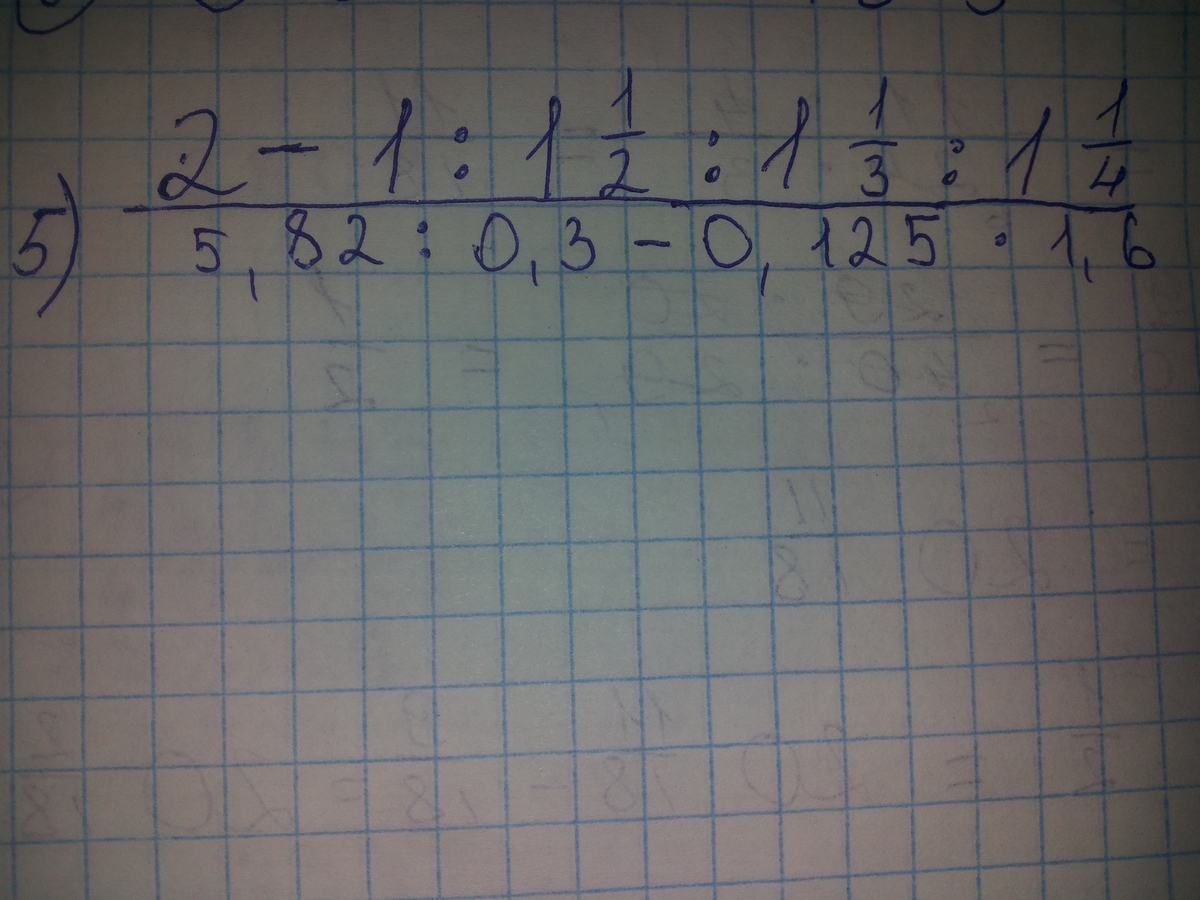 5) 2 - 1 : 1 1/2 : 1 1/3 : 1 1/4
5,82 : 0,3 - 0,125 : 1,6